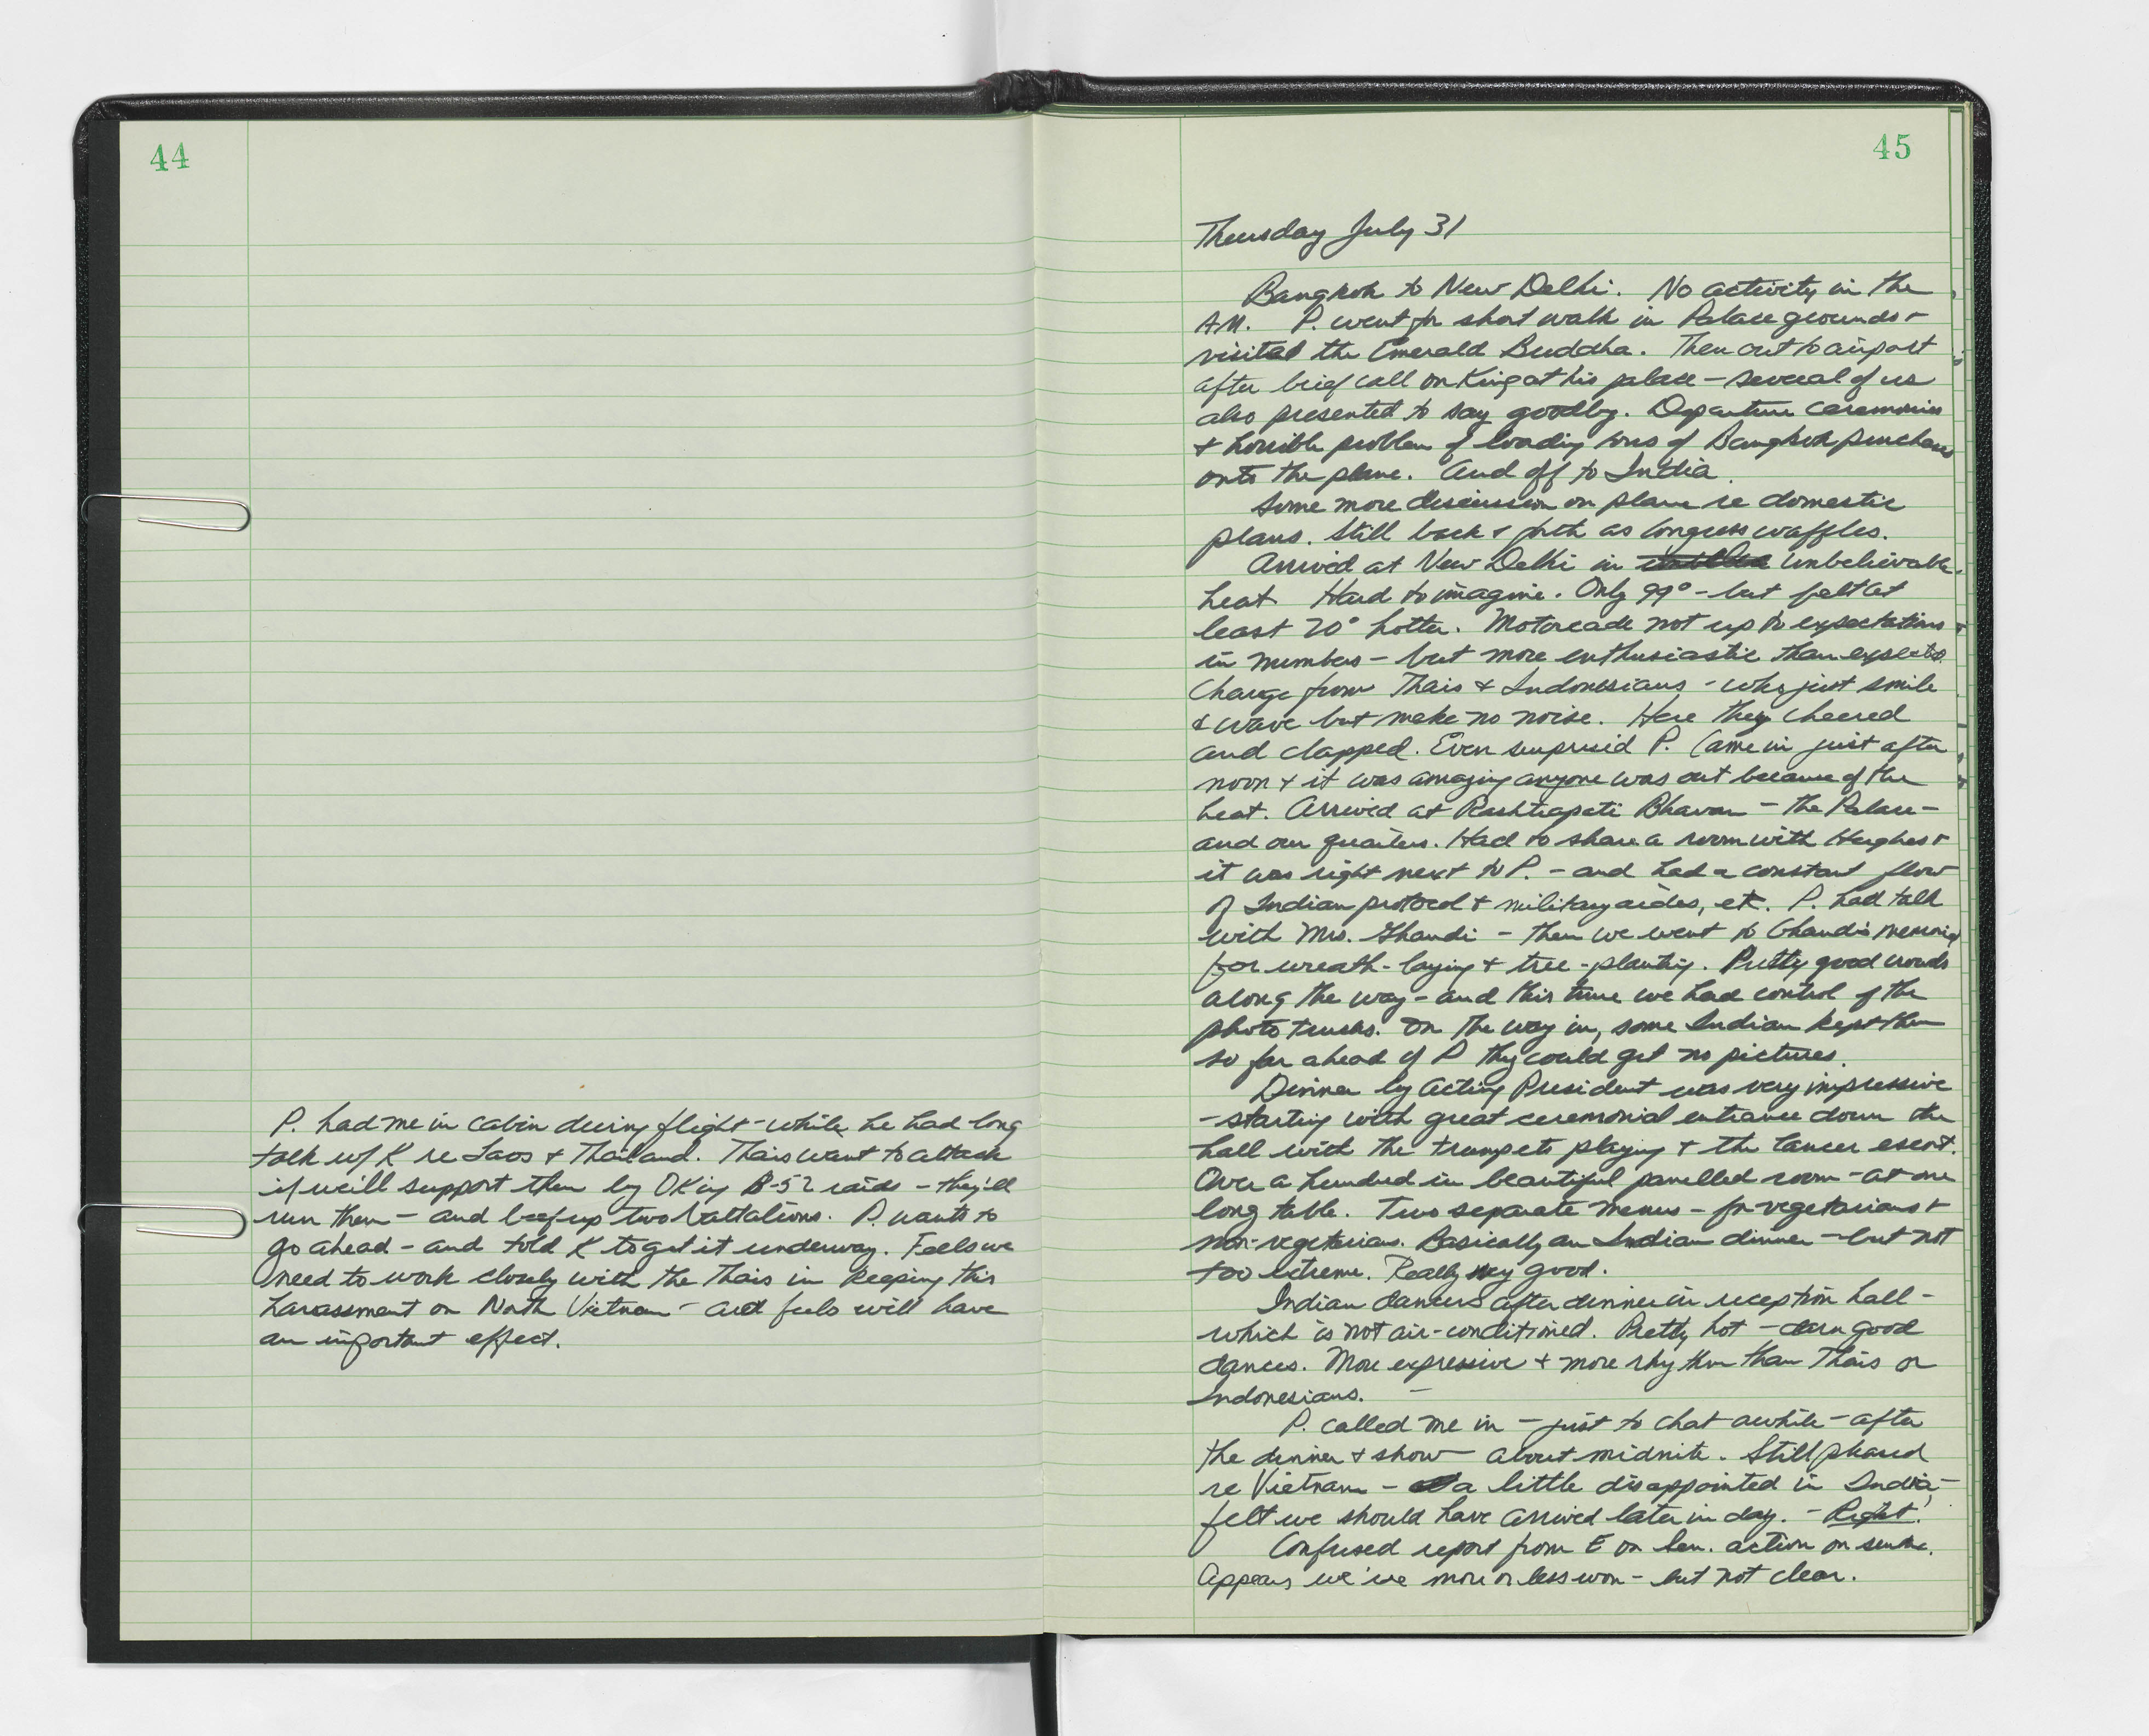 44
P. had me in cabin during flight - while he had long
talk w/ K re Laos + Thailand. Thais want to attack
if we'll support them by OKing B-52 raids - they'll
run them - and beef up two battalions. P. wants to
go ahead - and told K to get it underway. Feels we
need to work closely with the Thais in keeping this
harassment on North Vietnam - and feels will have
an important effect.
45
Thursday July 31
Bangkok to New Delhi. No activity in the
A.M. P. went for short walk in Palace grounds +
visited the Emerald Buddha. Then out to airport
after brief call on King at his palace - several of us
also presented to say goodby. Departure ceremonies
+ horrible problem of loading tons of Bangkok purchases
onto the plane. And off to India.
Some more discussion on plane re domestic
plans. Still back + forth as Congress waffles.
Arrived at New Delhi in unbelievable
heat Hard to imagine. Only 99° - but felt at
least 20° hotter. Motorcade not up to expectations
in numbers - but more enthusiastic than expected.
Change from Thais + Indonesians - who just smile
+ wave but make no noise. Here they cheered
and clapped. Even surprised P. Came in just after
noon + it was amazing anyone was out because of the
heat. Arrived at Rashtrapati Bhavan - the Palace -
and our quarters. Had to share a room with Hughes +
it was right next to P. - and had a constant flow
of Indian protocol + military aides, etc. P. had talk
with Mrs. Ghandi - then we went to Ghandi's memorial
for wreath-laying + tree-planting. Pretty good crowds
along the way - and this time we had control of the
photo trucks. On the way in, some Indian kept them
so far ahead of P they could get no pictures.
Dinner by Acting President was very impressive
- starting with great ceremonial entrance down the
hall with the trumpets playing + the lancer escort.
Over a hundred in beautiful panelled room - at one
long table. Two separate menus - for vegetarians +
non-vegetarians. Basically an Indian dinner - but not
too extreme. Really very good.
Indian dancers after dinner in reception hall -
which is not air-conditioned. Pretty hot - darn good
dances. More expressive + more rhythm than Thais or
Indonesians. -
P. called me in - just to chat awhile - after
the dinner + show - about midnite. Still pleased
re Vietnam - a little disappointed in India -
felt we should have arrived later in day. - Right!
Confused report from E on Sen. action on surtax.
Appears we've more or less won - but not clear.